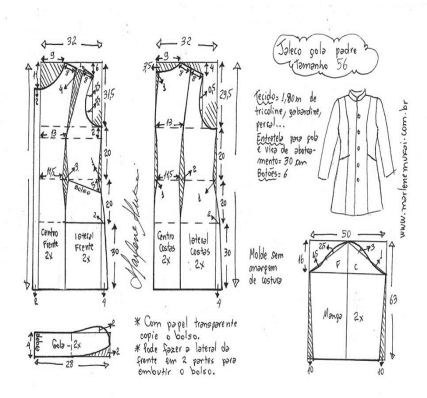 32
9
6
4
31,5
13
20
11,5
3
Bolso
20
2
30
Centro
Frente
2x
lateral
Frente
2x
2
4
Gola - 2x
2
2
28
32
3,5
9
4
29,5
13
20
11,5
20
2
30
Centro
Costas
2x
lateral
Costas
2x
4
Marlene Mukai
Jaleco gola padre
Tamanho 56
Tecido= 1,80m de
tricoline, gabardine,
percal...
Entretela para gola
e vista de abotoa-
mento= 30 cm
Botões= 6
www.marlenemukai.com.br
Molde sem
margem
de costura
50
16
F
C
Manga
2x
63
10
10
* Com papel transparente
copie o bolso.
* Pode fazer a lateral da
frente em 2 partes para
embutir o bolso.